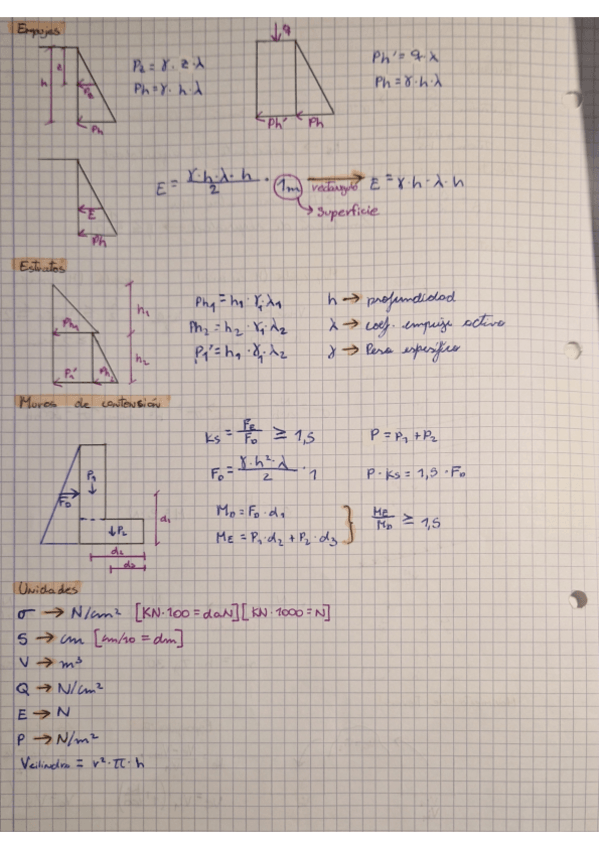 Empujes
h
z
Pz
Ph
Pz = γ · z · λ
Ph = γ · h · λ
q
Ph'
Ph
Ph' = q · λ
Ph = γ · h · λ
E
Ph
E = γ·h·λ·h / 2 · 1m rectangulo E = γ · h · λ · h
→ Superficie
Estratos
h1
h2
Ph1
P1'
Ph2
Ph1 = h1 · γ1 · λ1
Ph2 = h2 · γ1 · λ2
P1' = h1 · γ1 · λ2
h → profundidad
λ → coef. empuje activo
γ → Peso específico
Muros de contensión
P1
FD
P2
d1
d2
d2
Ks = FE / FD ≥ 1,5
FD = γ·h²·λ / 2 · 1
P = P1 + P2
P · Ks = 1,5 · FD
MD = FD · d1
ME = P1 · d2 + P2 · d3
ME / MD ≥ 1,5
Unidades
σ → N/cm² [KN·100 = daN] [KN·1000 = N]
S → cm [cm/10 = dm]
V → m³
Q → N/cm²
E → N
P → N/m²
Vcilindro = r² · π · h